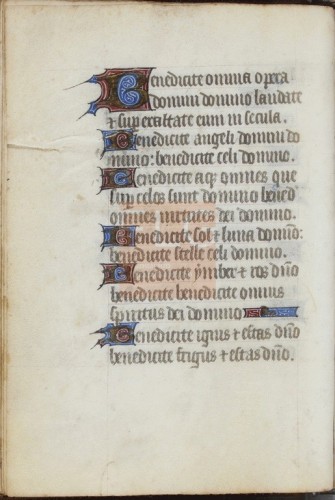 Benedicite omnia opera
domini domino laudate
⁊ superexaltate eum in secula.
Benedicite angeli domini do
mino: benedicite celi domino.
Benedicite aque omnes que
sup celos sunt domino bened
omnes virtutes dei domino.
Benedicite sol ⁊ luna domino:
benedicite stelle celi domino.
Benedicite ymber ⁊ ros dño
benedicite benedicite omnis
spiritus dei domino
Benedicite ignis ⁊ estas dño
benedicite frigus ⁊ estas dño.